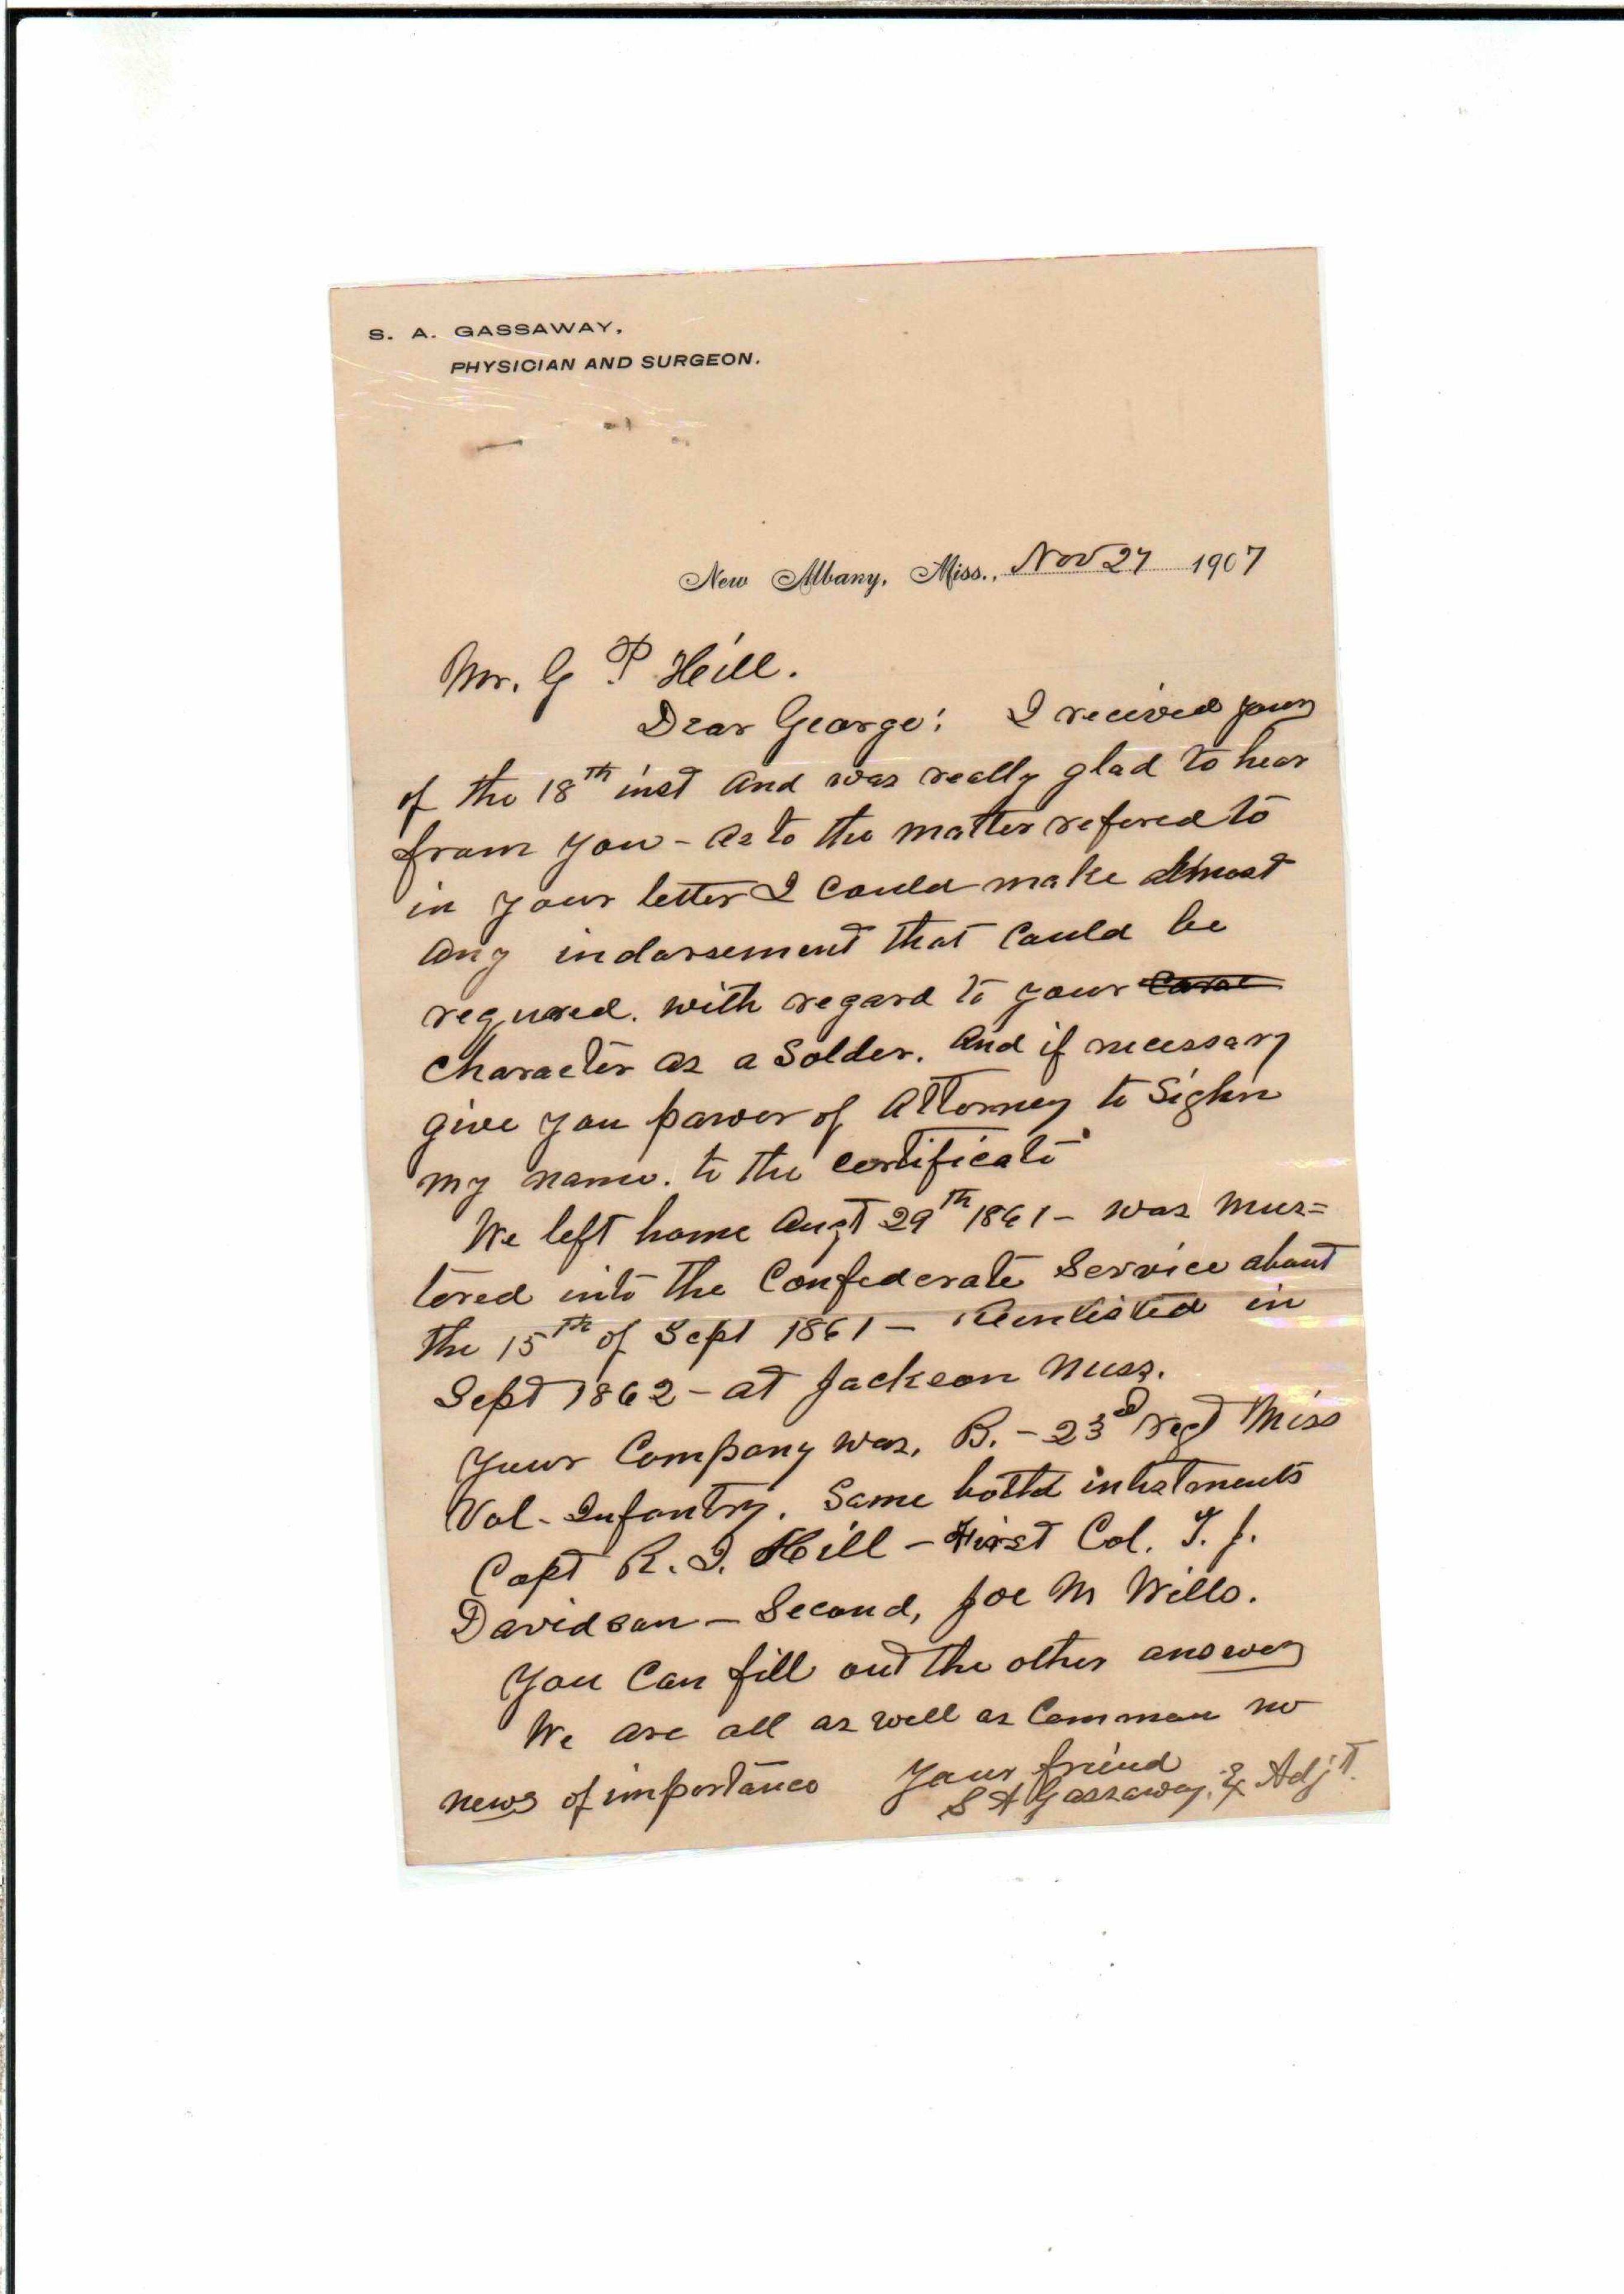 S. A. GASSAWAY,
PHYSICIAN AND SURGEON.
New Albany, Miss., Nov 27 1907
Mr. G P. Hill.
Dear George: I recieved yours
of the 18th inst and was really glad to hear
from you - as to the matter refered to
in your letter I could make almost
any indorsement that could be
requred. with regard to your
character as a Solder. And if necessary
give you power of Attorney to Sighn
my name. to the certificate
We left home Augt 29th 1861 - was mus=
tered into the Confederate Service about
the 15th of Sept 1861 - Reinlisted in
Sept 1862 - at Jackson Miss.
Your Company was, B. - 23d regt Miss
Vol - Infantry. Same both inlistments
Capt R. J. Hill - First Col. T. J.
Davidson - Second, Joe M Wells.
You can fill out the other answers
We are all as well as Common no
news of importance Your friend
S A Gassaway, Ex Adjt.